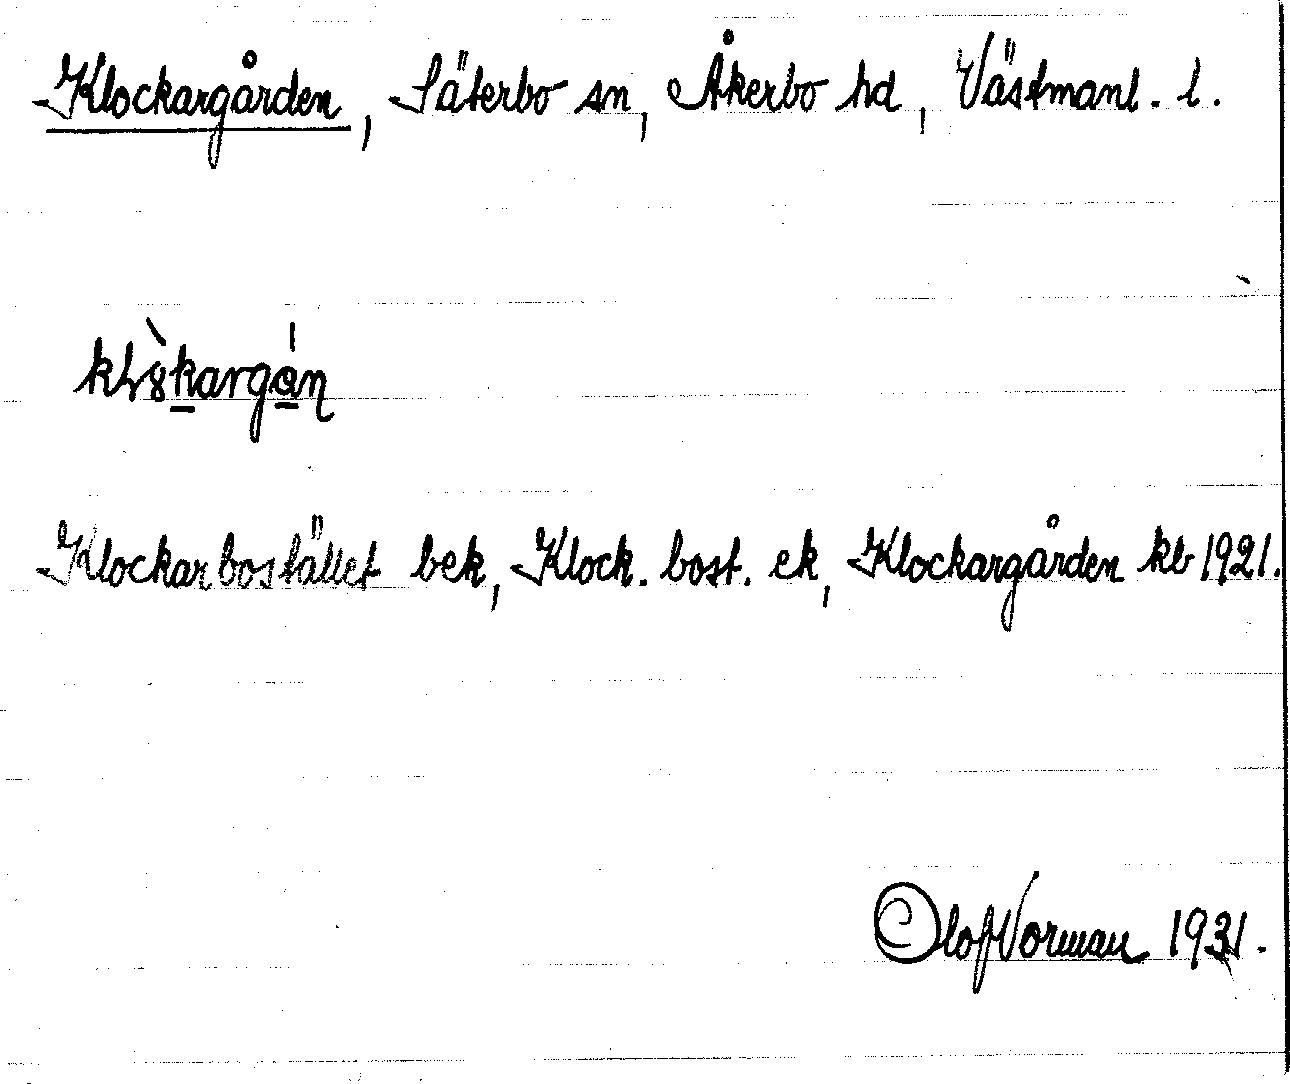 Klockargården, Säterbo sn, Åkerbo hd, Västmanl. l.
Klockarbostället bek, Klock. bost. ek, Klockargården kb 1921.
Olof Vorman 1931.